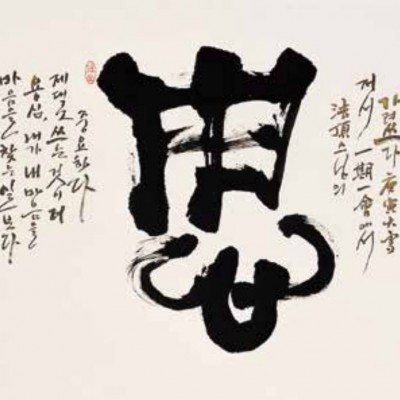 마음을 찾는 일보다
용심, 내가 내 마음을
제대로 쓰는 것이 더
중요하다
用心
法頂스님의
저서 一期一會에서
가려쓰다 庚寅大雪